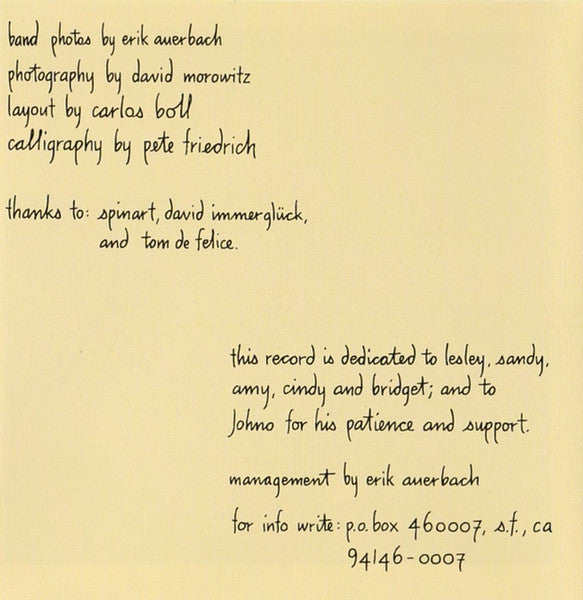 band photos by erik auerbach
photography by david morowitz
layout by carlos boll
calligraphy by pete friedrich
thanks to: spinart, david immerglück,
and tom de felice.
this record is dedicated to lesley, sandy,
amy, cindy and bridget; and to
Johno for his patience and support.
management by erik auerbach
for info write: p.o. box 460007, s.f., ca
94146-0007